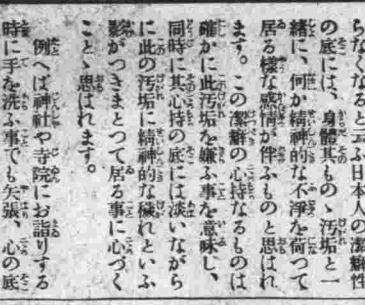 らなくなると云ふ日本人の潔癖性
の底には、身體其ものゝ汚垢と一
緒に、何か精神的な不淨を荷つて
居る樣な感情が伴ふものと思はれ
ます。この潔癖の心持なるものは
確かに此汚垢を嫌ふ事を意味し、
同時に其心持の底には淡いながら
に此の汚垢に精神的な穢れといふ
影がつきまとつて居る事に心づく
ことゝ思はれます。
例へば神社や寺院にお詣りする
時に手を洗ふ事でも矢張、心の底